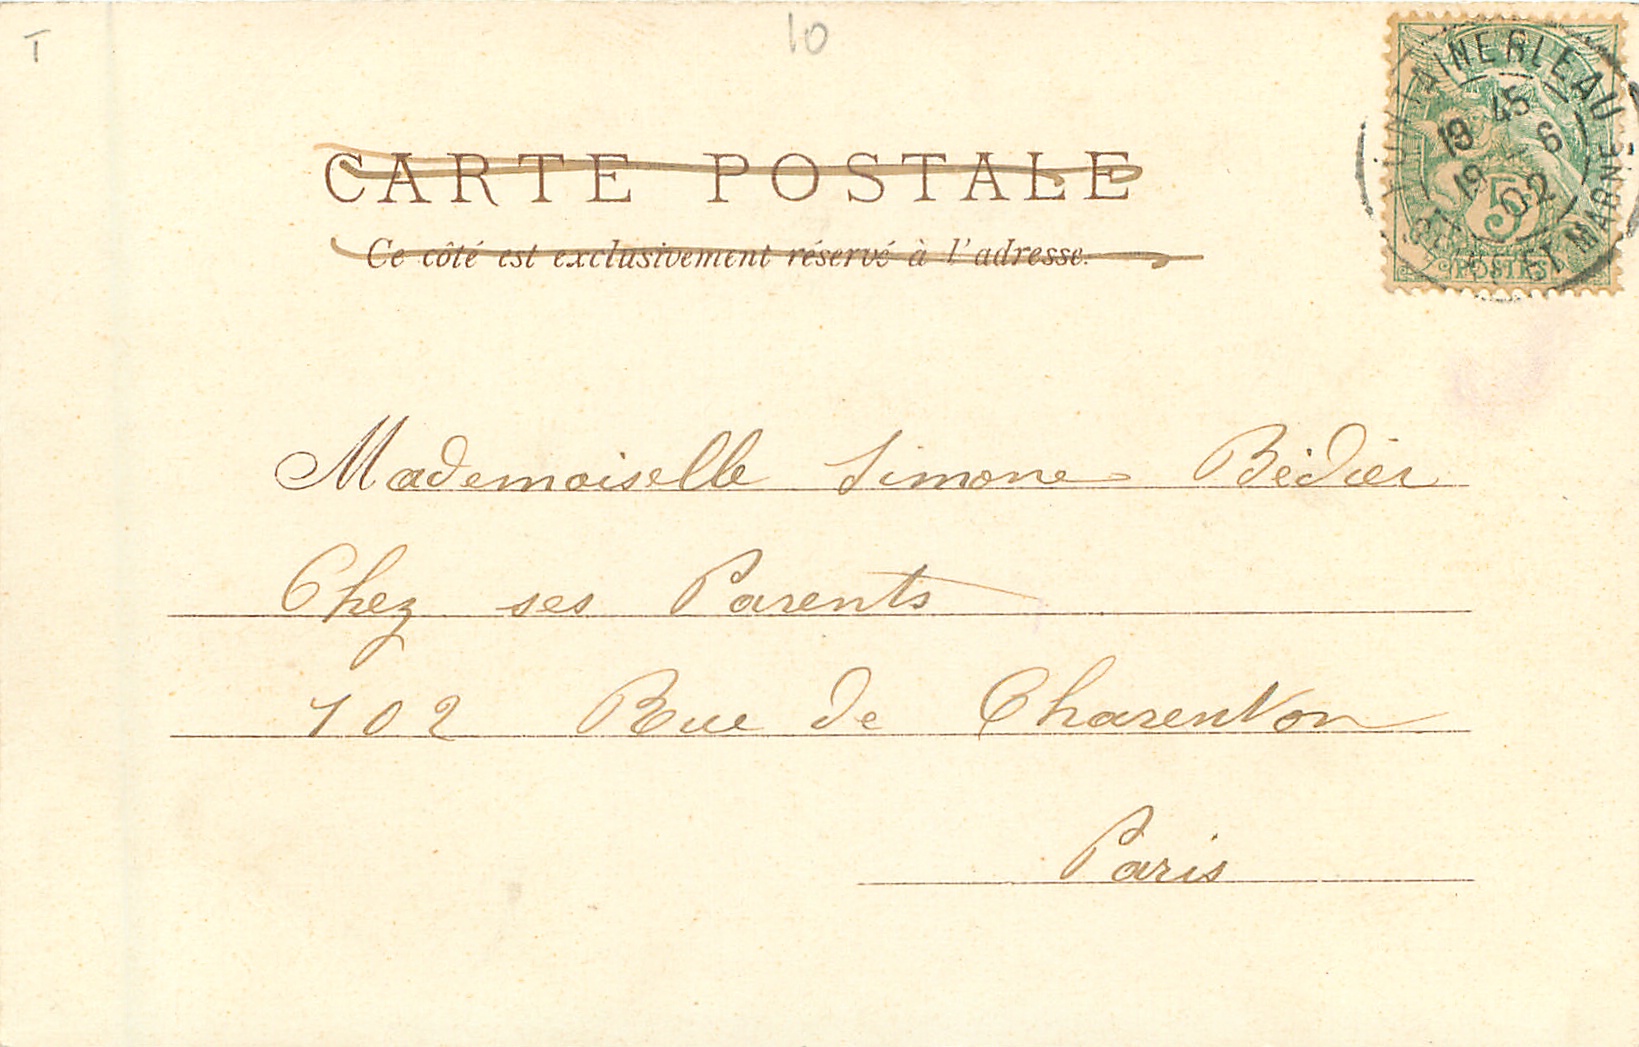 T
10
CARTE POSTALE
Ce côté est exclusivement réservé à l'adresse.
FONTAINEBLEAU
19 45
19 6
02
SEINE ET MARNE
5
POSTES
Mademoiselle Simone Bédier
Chez ses Parents
102 Rue de Charenton
Paris